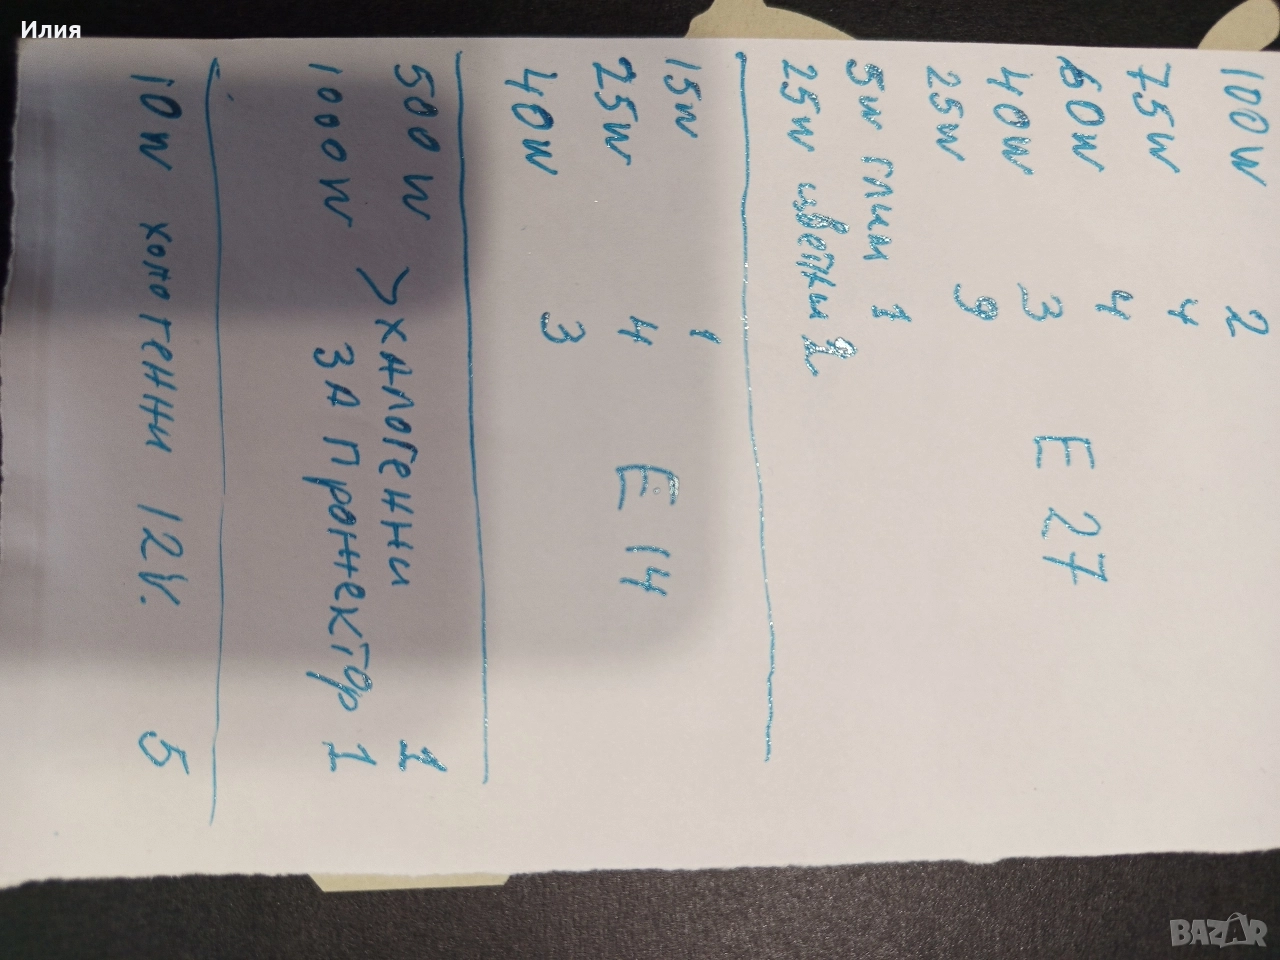 Илия
100W 2
75W 4
60W 4
40W 3
25W 9
E 27
5W глим 1
25W цветни 2
15W 1
25W 4
40W 3
E 14
500W > халогенни 1
1000W ЗА Прожектор 1
10W халогенни 12V. 5
BAZAR